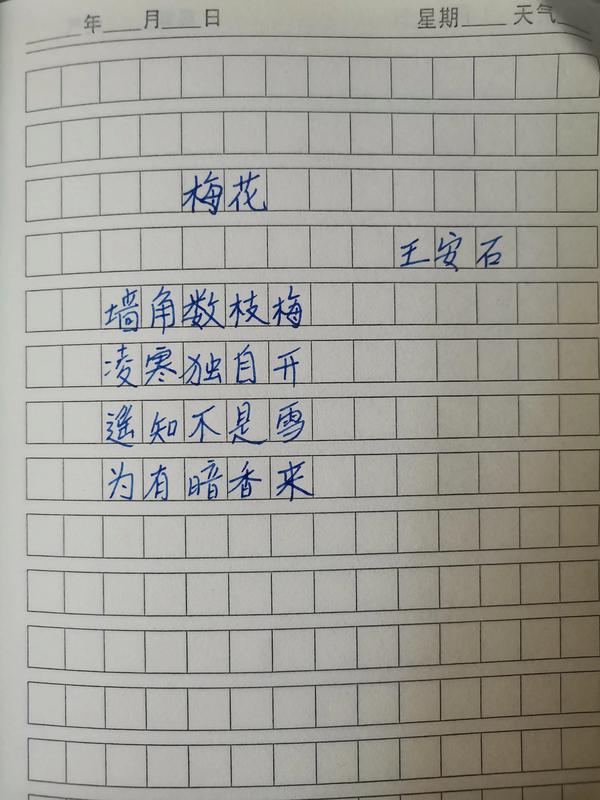 年 月 日 星期 天气
梅花
王安石
墙角数枝梅
凌寒独自开
遥知不是雪
为有暗香来